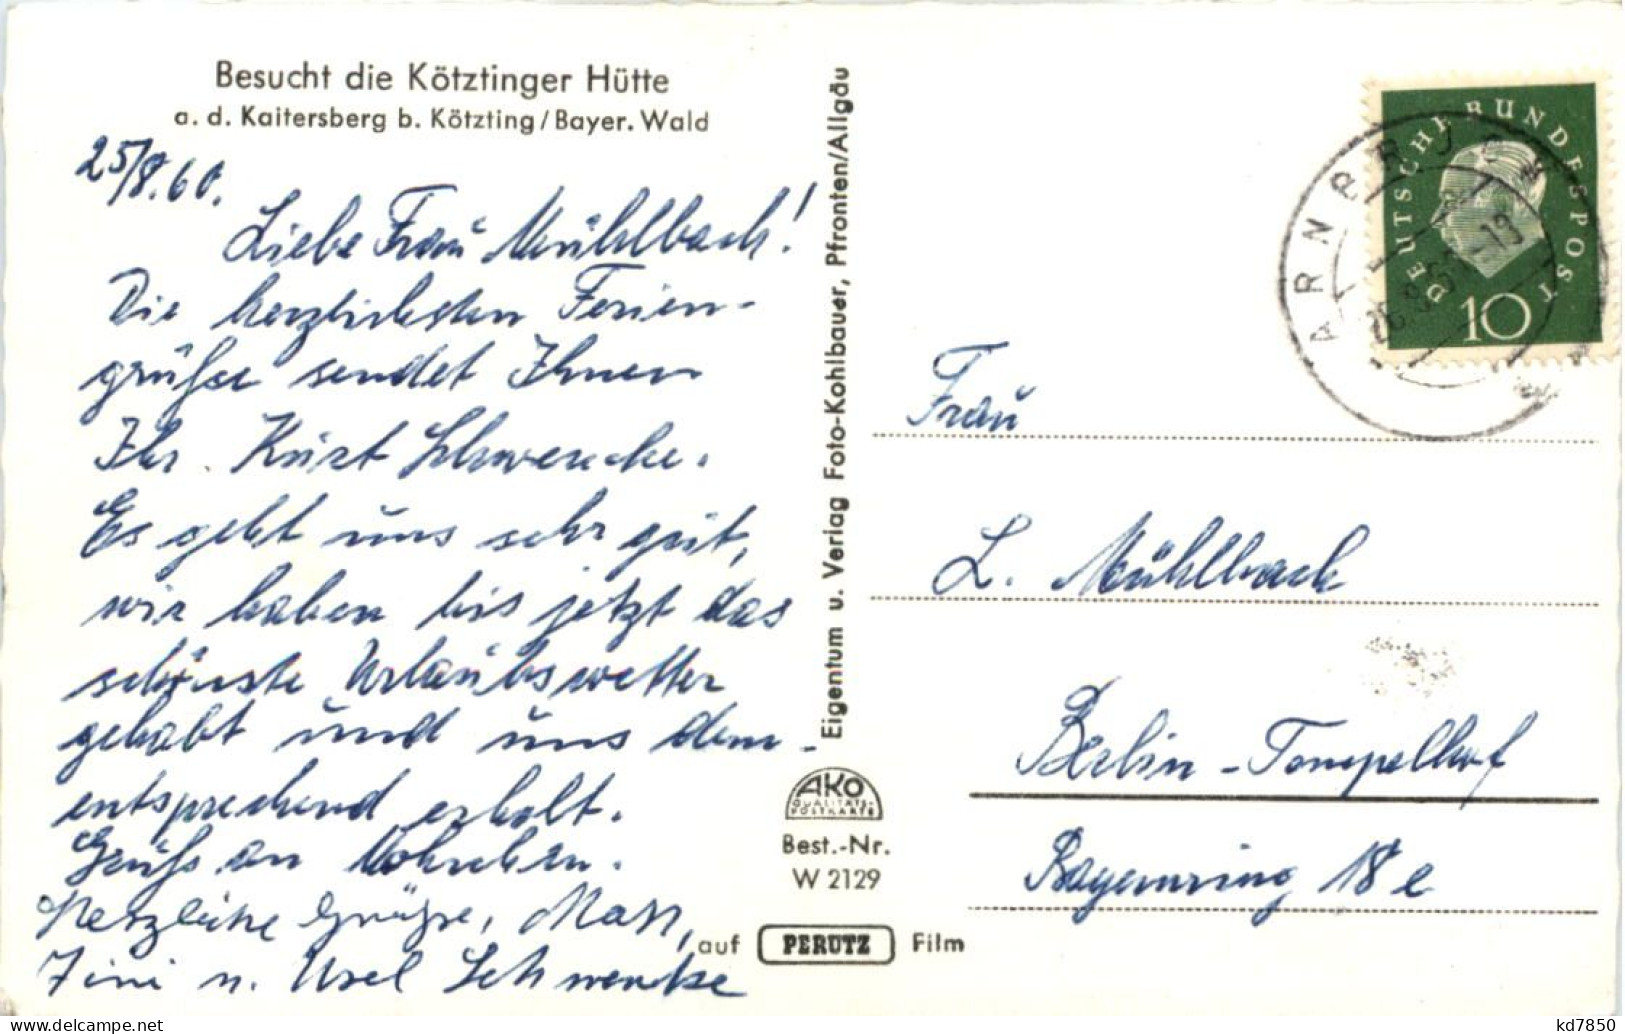 Besucht die Kötztinger Hütte
a. d. Kaitersberg b. Kötzting/Bayer. Wald
25/8.60.
Liebe Frau Mühlbach!
Die herzlichsten Ferien-
grüße sendet Ihnen
Ihr. Kurt Schwencke.
Es geht uns sehr gut,
wir haben bis jetzt das
schönste Urlaubswetter
gehabt und uns dem-
entsprechend erholt.
Gruß an
Herzliche Grüße,
u. Schwencke
Eigentum u. Verlag Foto-Kohlbauer, Pfronten/Allgäu
AKO
QUALITÄTS-
POSTKARTE
Best.-Nr.
W 2129
auf PERUTZ Film
DEUTSCHE BUNDESPOST
10
ARNBRUCK
Frau
L. Mühlbach
Berlin-Tempelhof
Bayernring 18e
kd7850